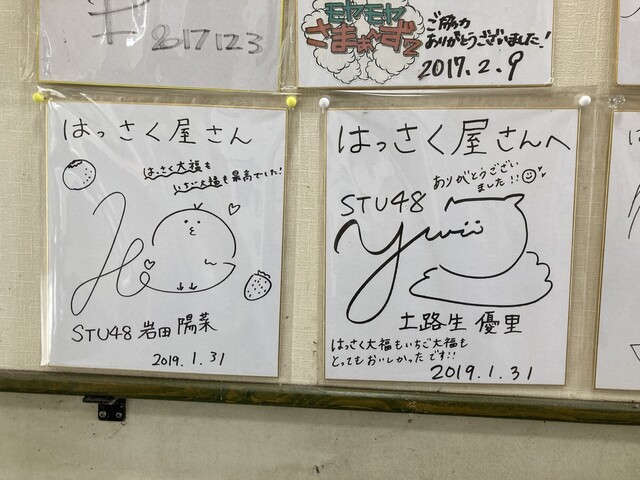 2017123
モヤモヤ
さまぁ~ず2
ご協力
ありがとうございました!
2017.2.9
はっさく屋さん
はっさく大福も
いちご大福も最高でした!
STU48 岩田 陽菜
2019.1.31
はっさく屋さんへ
ありがとうござい
ました!!
STU48
土路生 優里
はっさく大福もいちご大福も
とってもおいしかったです!!
2019.1.31